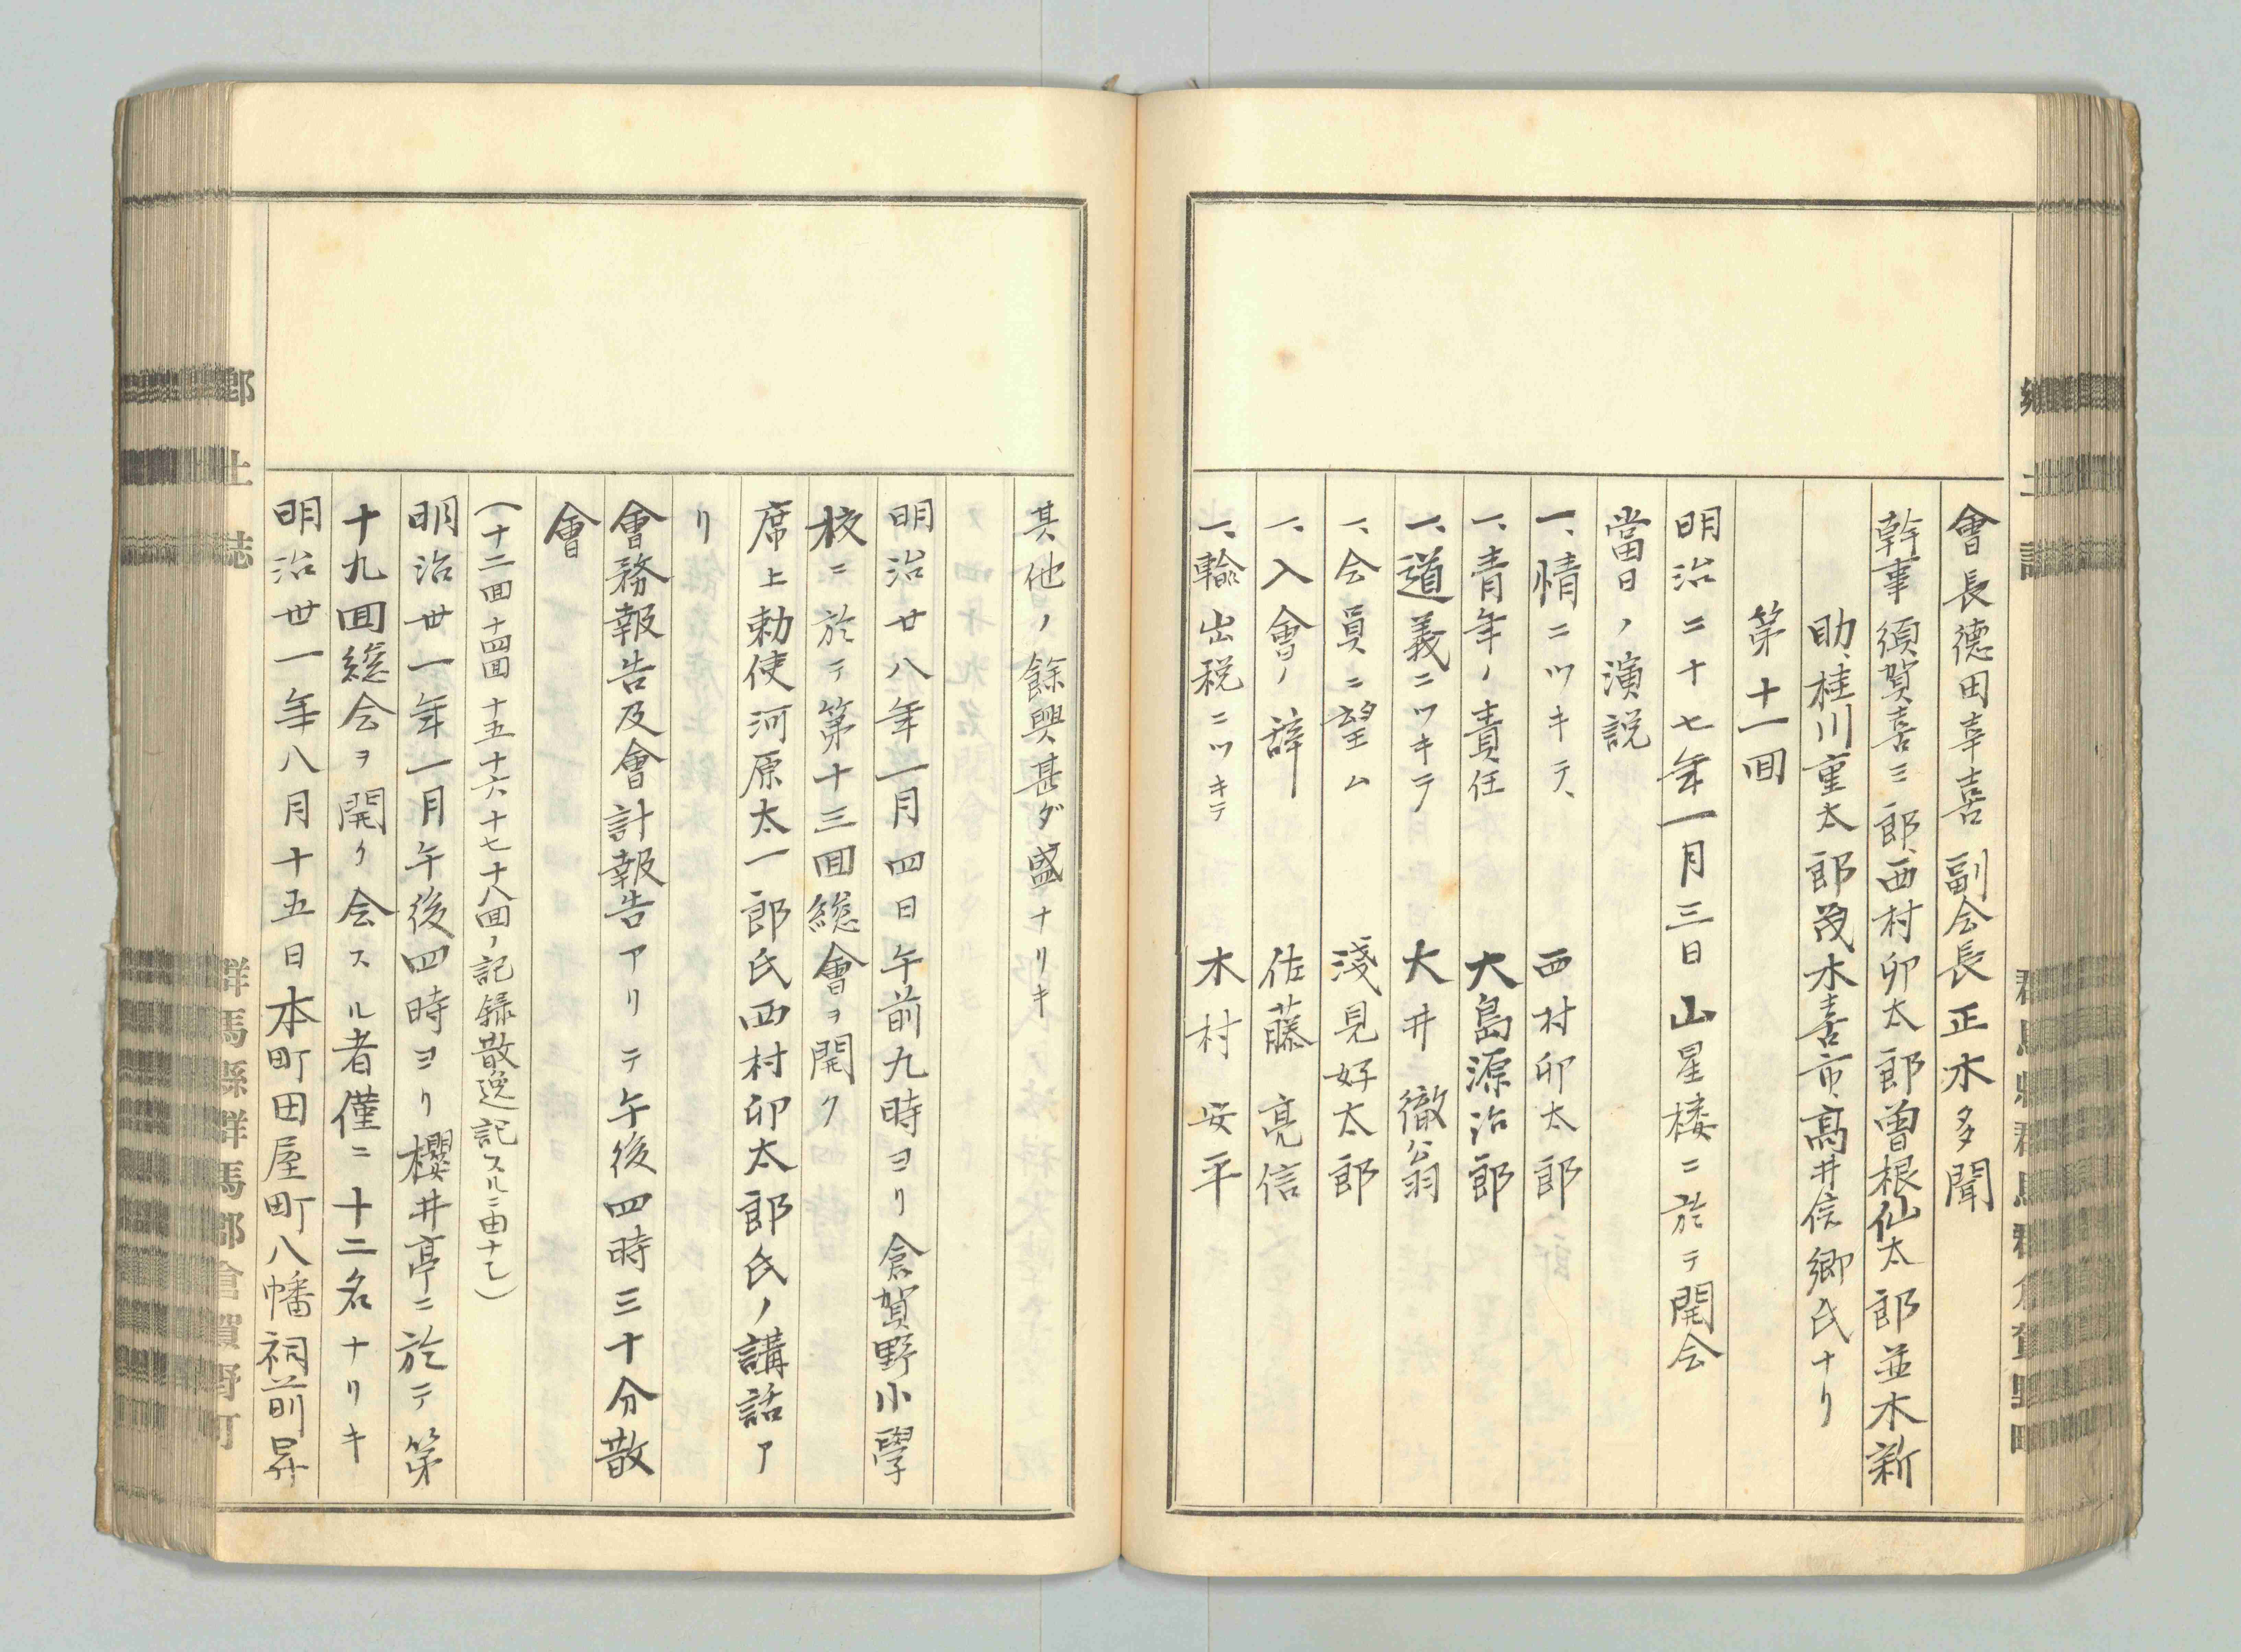 會長德田幸喜 副会長正木多聞
幹事須賀喜三郎、西村卯太郎曽根仙太郎並木新
助、桂川重太郎茂木喜市、高井信郷氏ナリ
第十一回
明治二十七年一月三日山星楼ニ於テ開会
當日ノ演説
一、情ニツキテ、 西村卯太郎
一、青年ノ責任 大島源治郎
一、道義ニツキテ 大井徹翁
一、会員ニ望ム 淺見好太郎
一、入會ノ辞 佐藤亮信
一、輸出税ニツキテ 木村安平
其他ノ餘興甚ダ盛ナリキ
明治廿八年一月四日午前九時ヨリ倉賀野小學
校ニ於テ第十三回総會ヲ開ク
席上勅使河原太一郎氏西村卯太郎氏ノ講話ア
リ
會務報告及會計報告アリテ午後四時三十分散
會
(十二回十四回十五十六十七十八回ノ記録散逸記スルニ由ナシ)
明治卅一年一月午後四時ヨリ櫻井亭ニ於テ第
十九回総会ヲ開ク会スル者僅ニ十二名ナリキ
明治卅一年八月十五日本町田屋町八幡祠前昇
郷土誌
群馬縣群馬郡倉賀野町